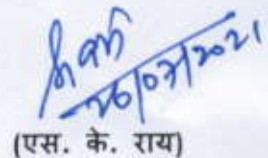 26/07/2021
(एस. के. राय)